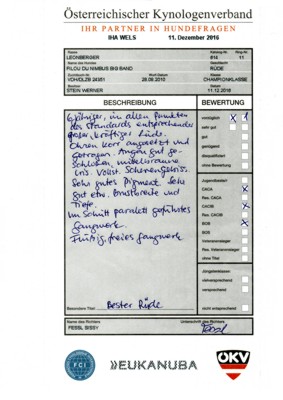 Österreichischer Kynologenverband
IHR PARTNER IN HUNDEFRAGEN
IHA WELS 11. Dezember 2016
Rasse Katalog-Nr. Ring-Nr.
LEONBERGER 816 11
Name des Hundes Geschlecht
FILOU DU NIMBUS BIG BAND RÜDE
Zuchtbuch-Nr. Wurf-Datum Klasse
28.09.2010 CHAMPIONKLASSE
Besitzer Datum
STEIN WERNER 11.12.2016
BESCHREIBUNG BEWERTUNG
6 jähriger, in allen Punkten
des Standards entsprechender
großer, kräftiger Rüde.
Ohren korr. angesetzt und
getragen. Augen gut ge-
schlossen, mittelbraune
Iris. Vollst. Scherengebiss.
Sehr gutes Pigment. Sehr
gut etw. Brustbreite und
Tiefe.
Im Schritt parallel geführtes
Gangwerk.
freies Gangwerk
Besondere Titel Bester Rüde
vorzüglich X 1
sehr gut
gut
genügend
disqualifiziert
ohne Bewertung
Jugendbester
CACA X
Res. CACA
CACIB X
Res. CACIB
BOB X
BOS
Veteranensieger
Res. Veteranensieger
ohne Titel
Jüngstenklassen
vielversprechend
versprechend
nicht entsprechend
Name des Richters Unterschrift des Richters
FESSL SISSY Fessl
FCI
EUKANUBA
ÖKV